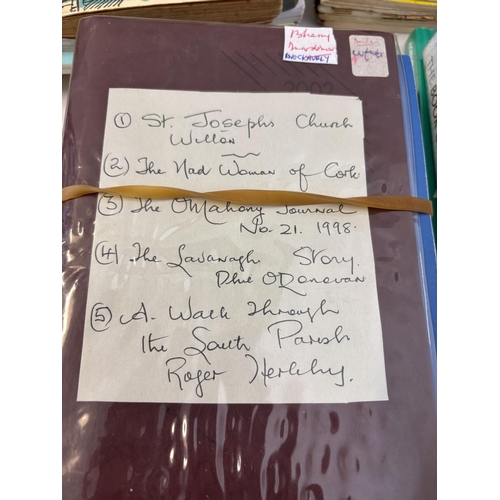 Botany
KNOCKAVELLY
2002
① St. Josephs Church
Wilton
② The Mad Woman of Cork
③ The O'Mahony Journal
No. 21. 1998.
④ The Lavanagh Story.
Dhie O'Donovan
⑤ A Walk Through
the South Parish
Roger Herlihy.